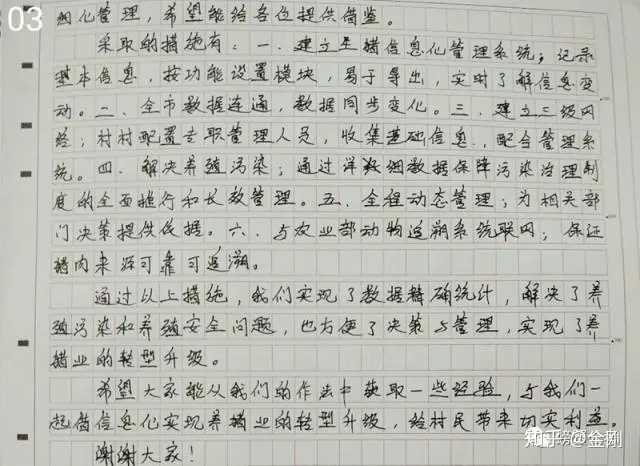 03
细化管理，希望能给各位提供借鉴。
采取的措施有：一、建立生猪信息化管理系统；记录
基本信息，按功能设置模块，易于导出，实时了解信息变
动。二、全市数据连通，数据同步变化。三、建立三级网
络；村村配置专职管理人员，收集基础信息，配合管理系
统。四、解决养殖污染；通过详数细数据保障污染治理制
度的全面推行和长效管理。五、全程动态管理；为相关部
门决策提供依据。六、与农业部动物追溯系统联网；保证
猪肉来源可靠可追溯。
通过以上措施，我们实现了数据精确统计，解决了养
殖污染和养殖安全问题，也方便了决策与管理，实现了养
猪业的转型升级。
希望大家能从我们的作法中获取一些经验，与我们一
起借信息化实现养猪业的转型升级，给村民带来切实利益。
谢谢大家！
知乎 @金刚